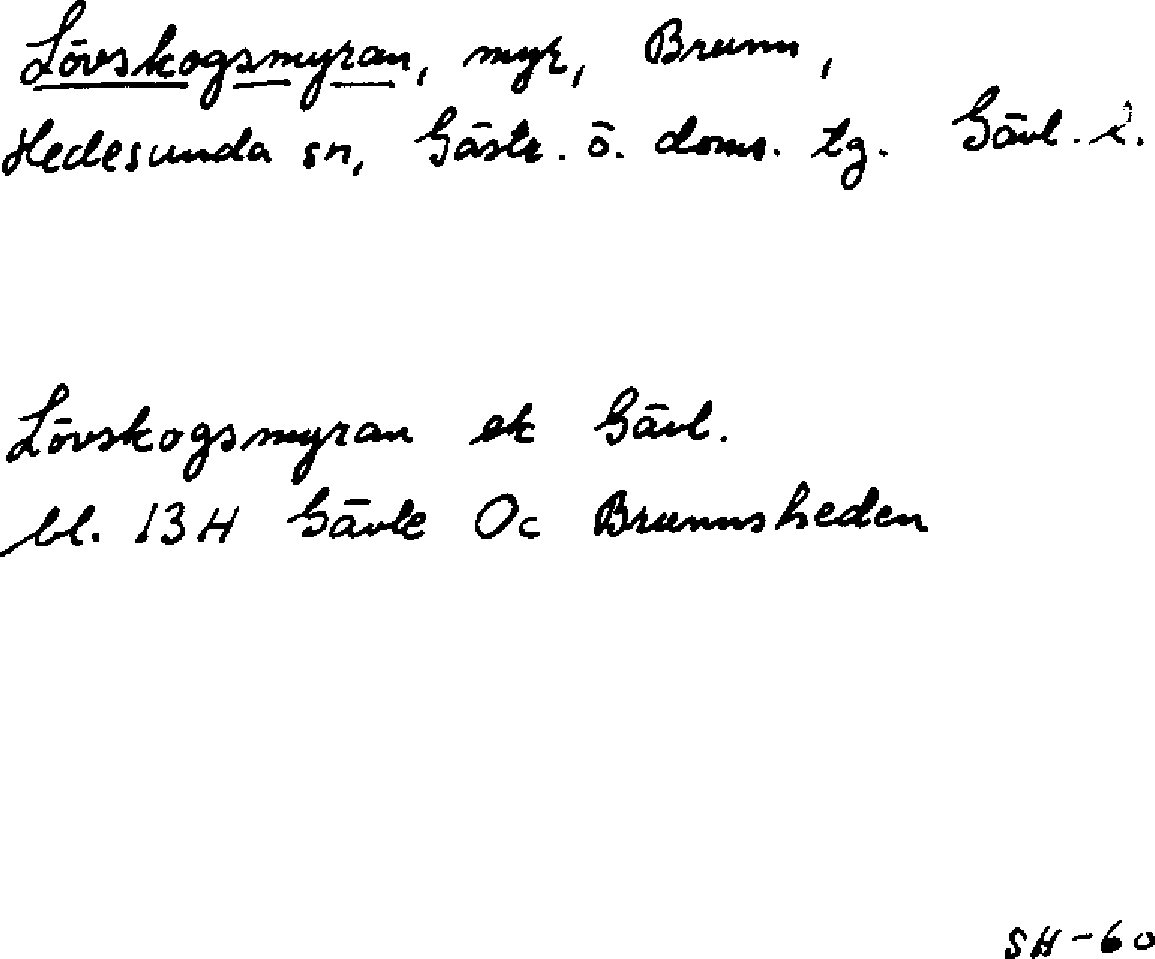 Lövskogsmyran, myr, Brunn,
Hedesunda sn, Gästr. ö. doms. tg. Gävl. l.
Lövskogsmyran ek Gävl.
bl. 13H Gävle 0c Brunnsheden
SH-60